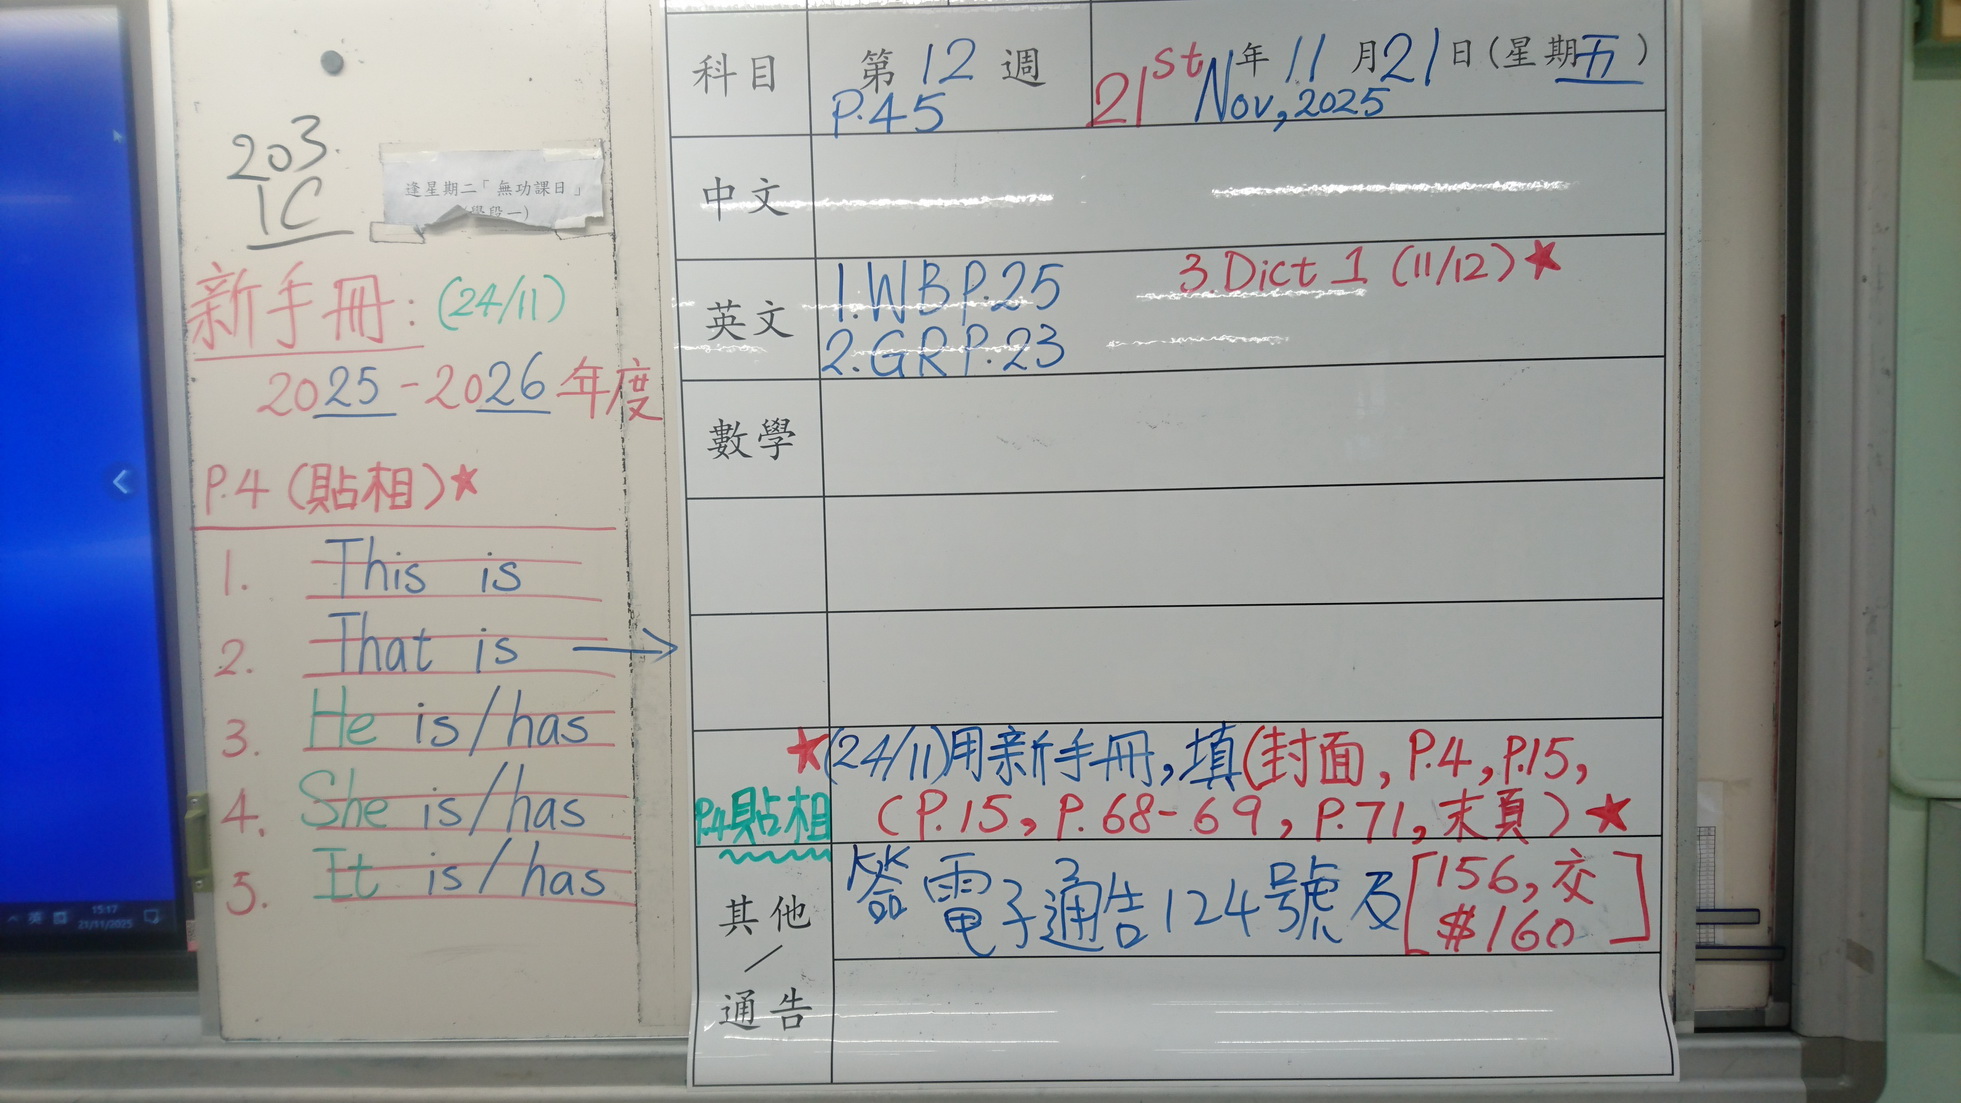 203
1C
逢星期二「無功課日」
學段一)
新手冊: (24/11)
2025-2026年度
P.4 (貼相)★
1. This is
2. That is →
3. He is/has
4. She is/has
5. It is/has
科目 第12週 年11月21日(星期五)
P.45 21st Nov, 2025
中文
英文 1.WB P.25 3.Dict 1 (11/12)★
2.GR P.23
數學
★(24/11)用新手冊,填(封面, P.4, P.15,
P.4貼相 (P.15, P.68-69, P.71, 末頁)★
其他/通告 簽電子通告124號及[156,交
$160]
英
15:17
21/11/2025